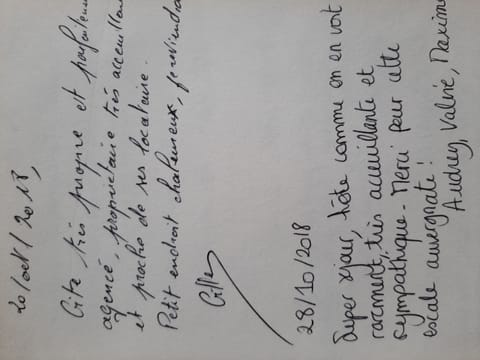 20/oct/2018,
Gite très propre et parfaitemen
agencé, propriétaire très acceuillan
et proche de ses locataire.
Petit endroit chaleureux, je reviendra
28/10/2018
Super séjour, hôte comme on en voit
rarement, très acceuillante et
sympathique. Merci pour cette
escale auvergnate!
Audrey, Valérie, Maxime